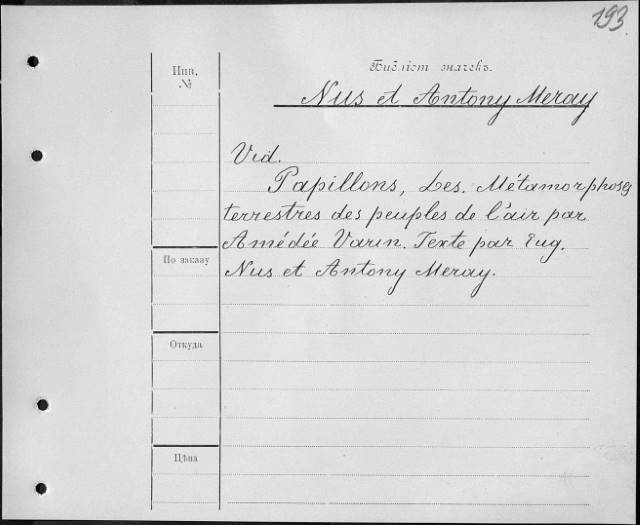 193
Инв.
№
Библіот. значекъ.
Nus et Antony Meray
Vid.
Papillons, Les. Métamorphoses
terrestres des peuples de l'air par
Amédée Varin. Texte par Eug.
Nus et Antony Meray.
По заказу
Откуда
Цѣна